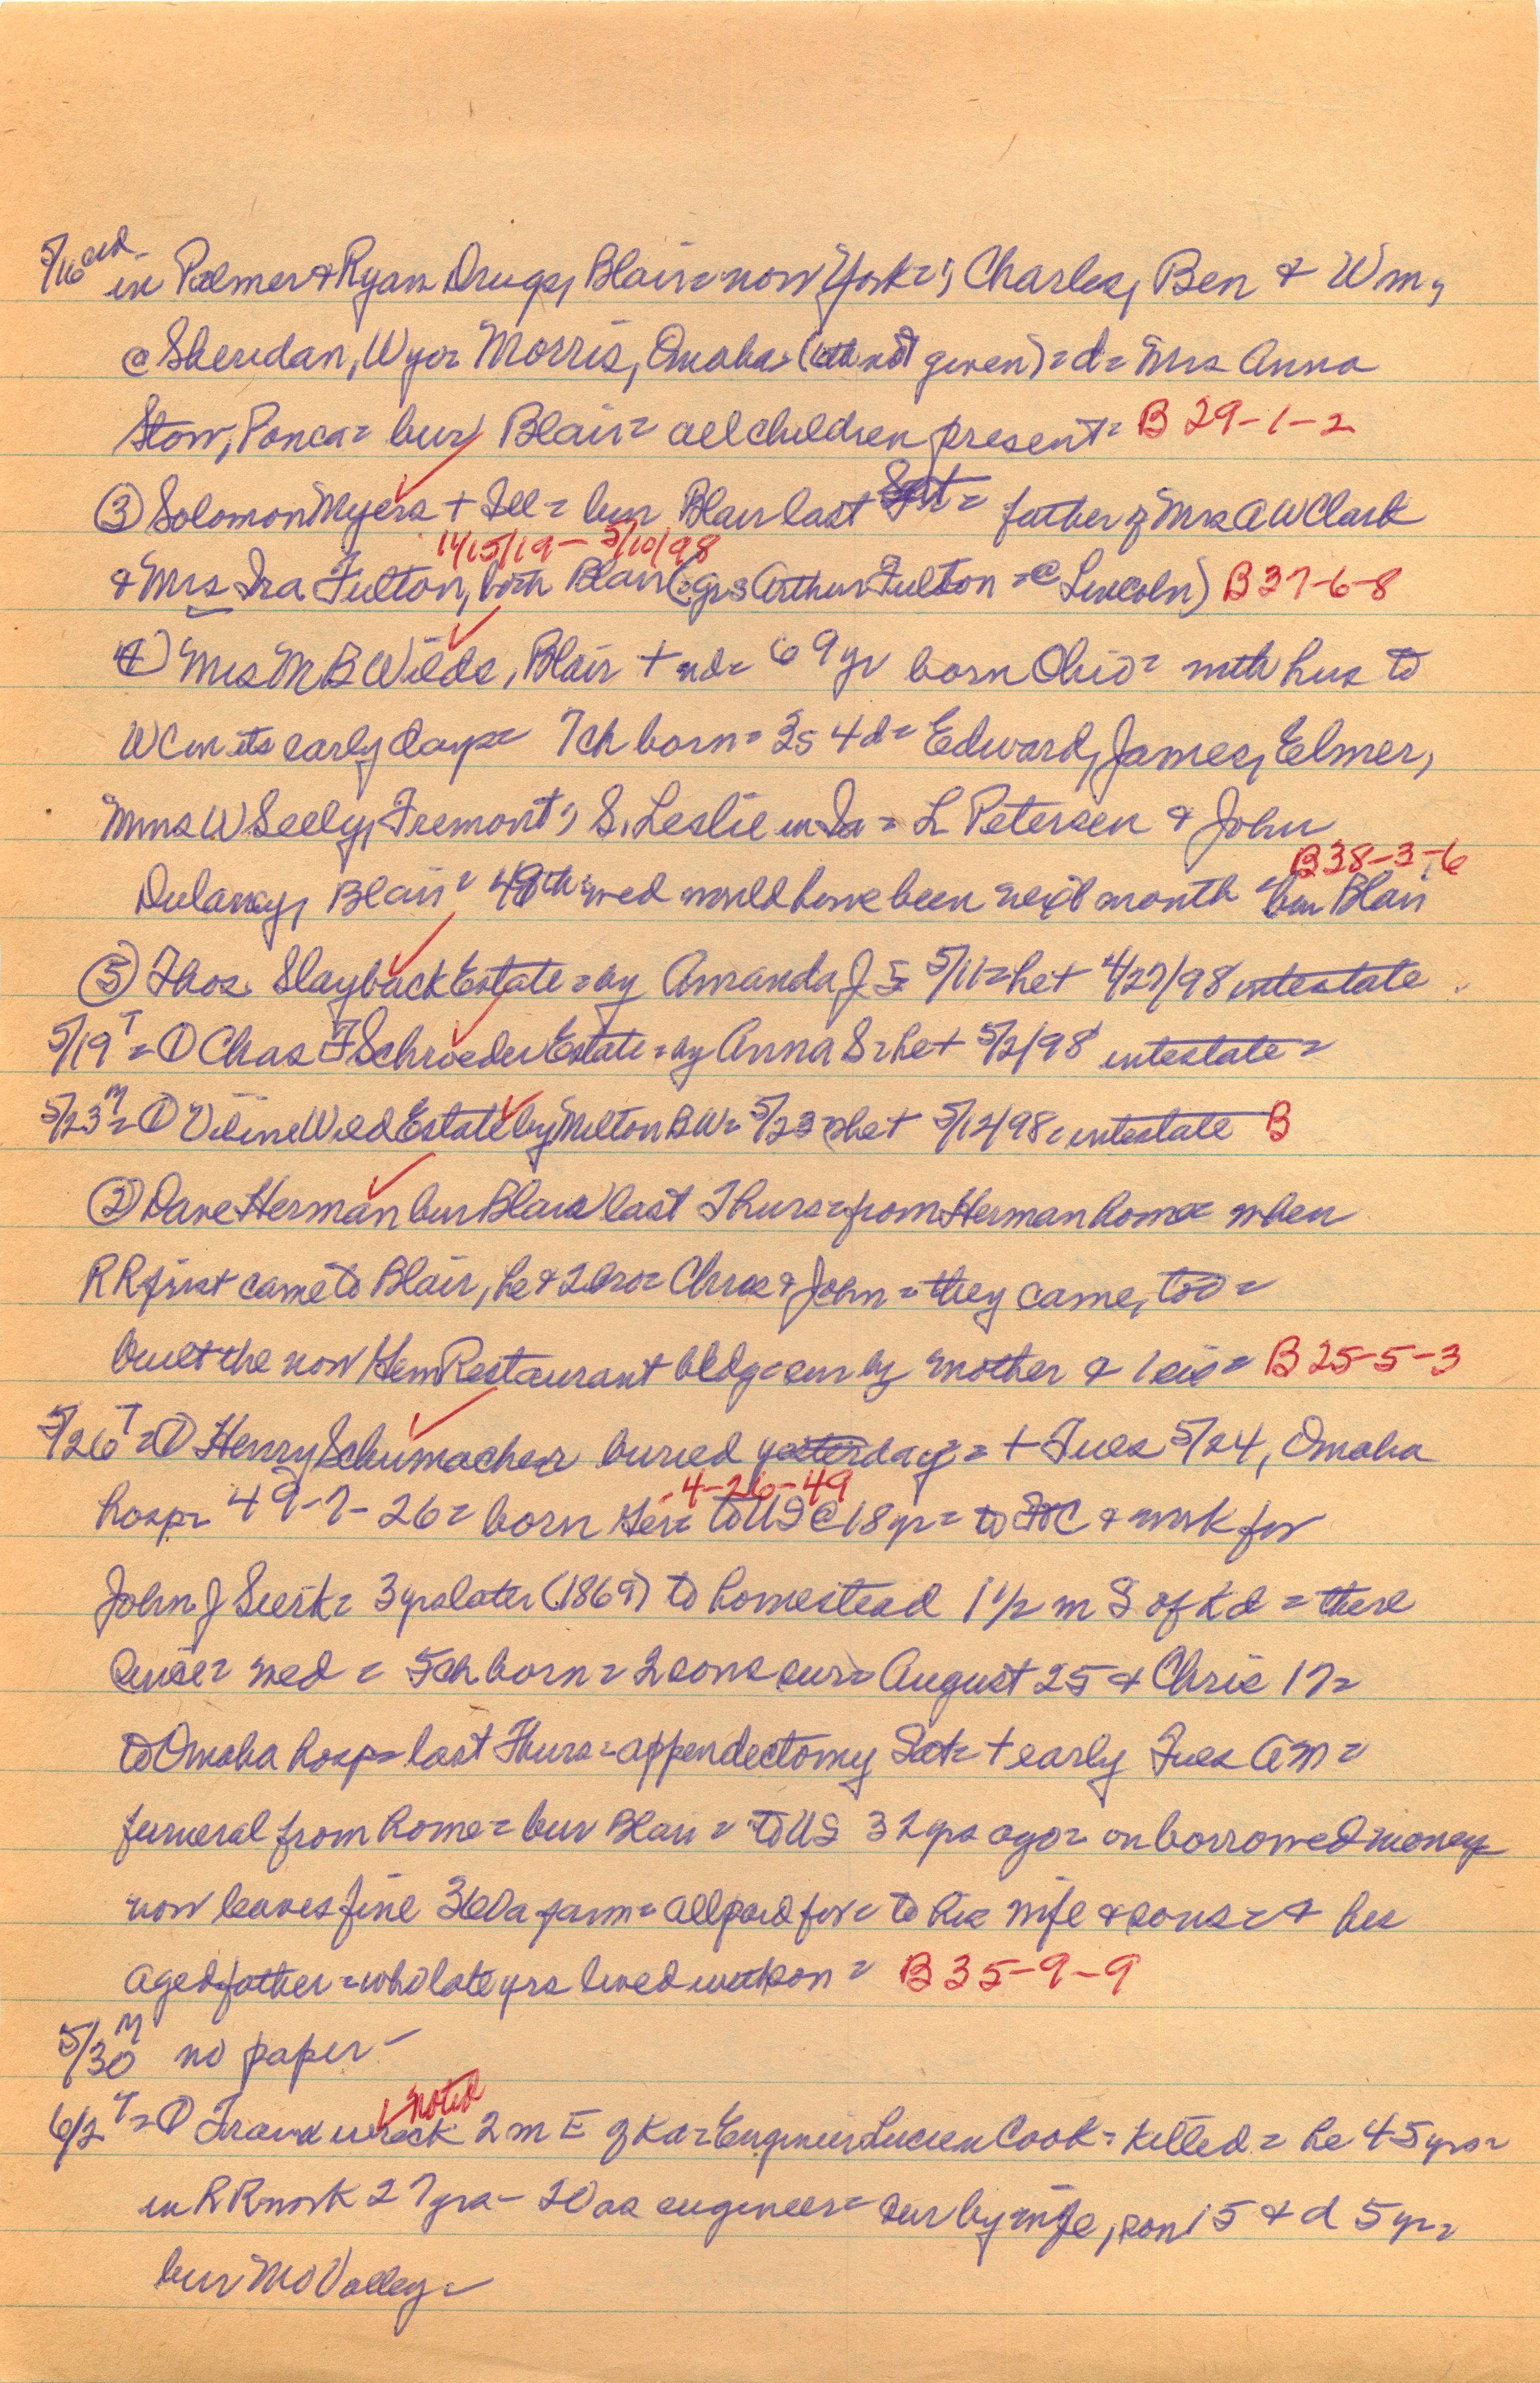 5/16 ctd - in Palmer & Ryan Drugs, Blair = now York = ; Charles, Ben & Wm,
@ Sheridan, Wyo = Morris, Omaha = (oth not given) = d = Mrs Anna
Stow, Ponca = bur Blair = all children present = B 29-1-2
③ Solomon Myers + Ill = bur Blair last Sat = father of Mrs A W Clark
11/15/19 - 5/10/98
& Mrs Ira Fulton, both Blair (= gs Arthur Fulton = @ Lincoln) B 37-6-8
④ Mrs M B Wilds, Blair + nd = 69 yr born Ohio = with hus to
WC in its early days = 7 ch born = 3s 4d = Edward, James, Elmer,
Mmes W Seely, Fremont; S. Leslie in Ia = L Petersen & John
B 38-3-6
Dulaney, Blair = 48th wed would have been next month = bur Blair
⑤ Thos. Slayback Estate = by Amanda J S = 5/11 = he + 4/27/98 intestate
5/19 T = ① Chas F Schroeder Estate = by Anna S = he + 5/2/98 intestate =
5/23 M = ① Wild Estate by Milton B W = 5/23 = she + 5/12/98 = intestate B
② Dave Herman bur Blair last Thurs = from Herman home = when
RR first came to Blair, he & 2 bro = Chris & John = they came, too =
built the now Gem Restaurant bldg = sur by mother & 1 sis = B 25-5-3
5/26 T = ① Henry Schumacher buried yesterday = + Tues 5/24, Omaha
4-26-49
hosp = 49-7-26 = born Ger = to US @ 18 yr = to & work for
John J Sierk = 3 yrs later (1869) to homestead 1 1/2 m S of Kd = there
since = wed = 5 ch born = 2 sons sur = August 25 & Chris 17 =
to Omaha hosp = last Thurs = appendectomy Sat = + early Tues AM =
funeral from home = bur Blair = to US 32 yrs ago = on borrowed money
now leaves fine 360a farm = all paid for = to his wife & sons = & his
aged father = who late yrs lived with son = B 35-9-9
5/30 M no paper -
noted
6/2 T = ① Train wreck 2 m E of Ka = Engineer Lucien Cook = killed = he 45 yrs =
in RR work 27 yrs - 20 as engineer = sur by wife, son 15 & d 5 yr =
bur MO Valley =